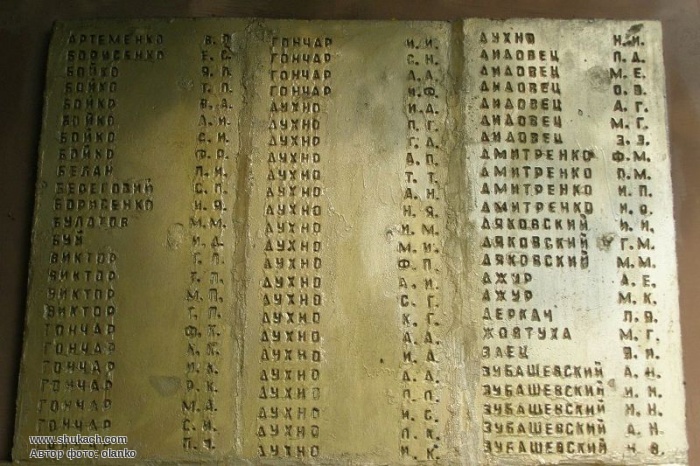 АРТЕМЕНКО В.О.
БОРИСЕНКО Е.С.
БОЙКО Я.П.
БОЙКО Т.П.
БОЙКО В.А.
БОЙКО А.И.
БОЙКО С.И.
БОЙКО Ф.Р.
БЕЛАН П.И.
БЕРЕГОВИЙ С.П.
БОРИСЕНКО И.Я.
БУЛАТОВ М.М.
БУЙ И.Д.
ВИКТОР Г.П.
ВИКТОР Т.П.
ВИКТОР М.П.
ВИКТОР Т.П.
ГОНЧАР Ф.К.
ГОНЧАР К.К.
ГОНЧАР И.А.
ГОНЧАР Р.К.
ГОНЧАР М.А.
ГОНЧАР С.И.
ГОНЧАР И.И.
ГОНЧАР С.Н.
ГОНЧАР А.А.
ГОНЧАР И.Ф.
ДУХНО И.Д.
ДУХНО П.Г.
ДУХНО Г.Д.
ДУХНО А.П.
ДУХНО Т.Т.
ДУХНО А.Н.
ДУХНО Н.Я.
ДУХНО И.М.
ДУХНО М.И.
ДУХНО Ф.П.
ДУХНО И.А.
ДУХНО С.Г.
ДУХНО К.Г.
ДУХНО А.А.
ДУХНО И.А.
ДУХНО Д.Д.
ДУХНО П.П.
ДУХНО И.С.
ДУХНО П.К.
ДУХНО И.К.
ДУХНО Н.И.
ДИДОВЕЦ П.Д.
ДИДОВЕЦ М.Е.
ДИДОВЕЦ О.В.
ДИДОВЕЦ А.Г.
ДИДОВЕЦ М.Г.
ДИДОВЕЦ З.З.
ДМИТРЕНКО Ф.М.
ДМИТРЕНКО П.М.
ДМИТРЕНКО И.П.
ДМИТРЕНКО И.Я.
ДЯКОВСКИЙ И.И.
ДЯКОВСКИЙ Г.М.
ДЯКОВСКИЙ М.М.
ДЖУР А.Е.
ДЖУР М.К.
ДЕРКАЧ Л.В.
ЖОВТУХА М.Г.
ЗАЕЦ Я.И.
ЗУБАШЕВСКИЙ А.Н.
ЗУБАШЕВСКИЙ И.Н.
ЗУБАШЕВСКИЙ Н.Н.
ЗУБАШЕВСКИЙ А.Н.
ЗУБАШЕВСКИЙ Н.В.
www.shukach.com
Автор фото: olanko